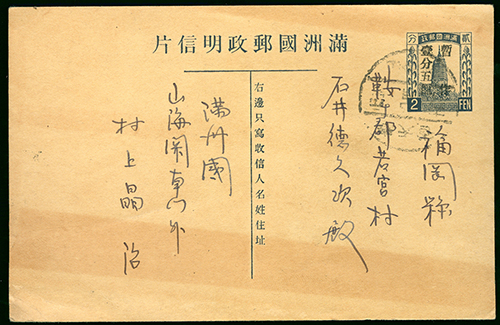 滿洲國郵政明信片
滿洲國郵政
貳分
暫作
壹分五厘
2 FEN
福岡縣
鞍手郡若宮村
石井德久次殿
右邊只寫收信人名姓住址
満州國
山海関東門外
村上晶治